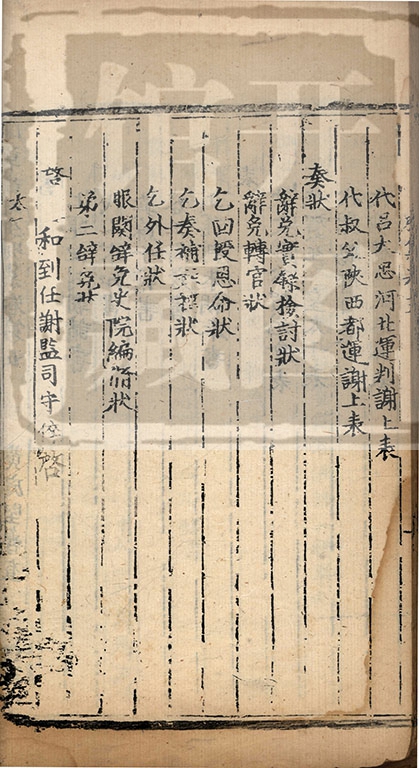 代呂大忠河北運判謝上表
代叔父陝西都運謝上表
奏狀
辭免實錄檢討狀
辭免轉官狀
乞回授恩命狀
乞奏補狀
乞外任狀
服闋辭免史院編脩狀
第二辭免狀
啓
和到任謝監司守倅啓
太